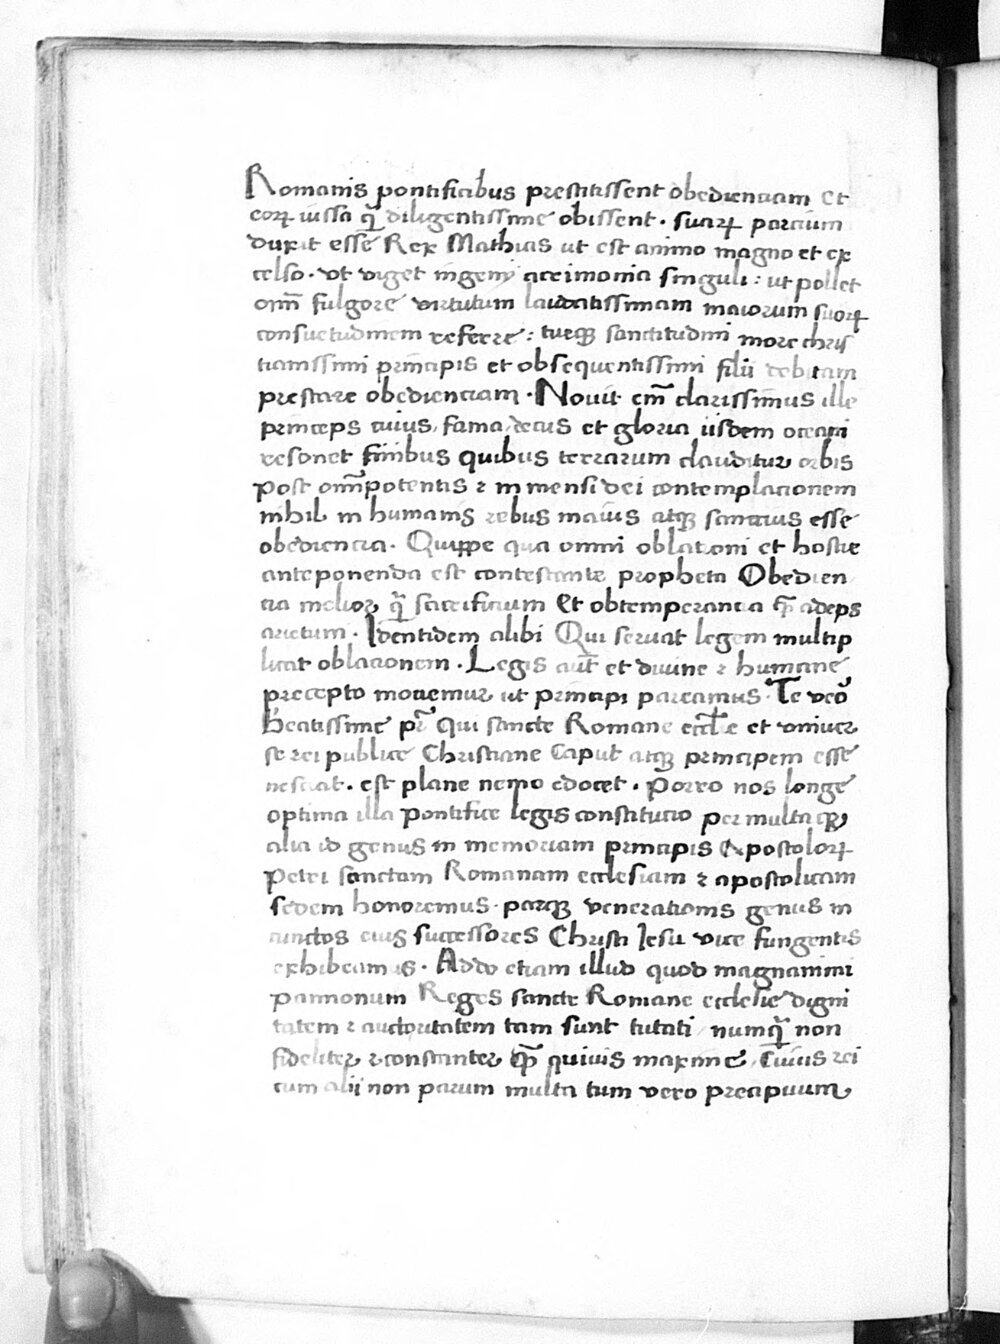 Romanis pontificibus prestitissent obedienciam et
eorꝝ iussa q̃ diligentissime obissent. suarꝝ parcium
duxit esse Rex Mathias ut est animo magno et ex
celso. ut viget ingenij acrimonia singuli: ut pollet
om̃ fulgore virtutum laudatissimam maiorum suorꝝ
consuetudinem referre: tueqꝫ sanctitudini more chris
tianissimi principis et obsequentissimi filii debitam
prestare obedienciam. Novit em̃ clarissimus ille
princeps cuius, fama, decus et gloria iisdem oceani
resonet finibus quibus terrarum clauditur orbis
post om̃ipotentis ⁊ in mensi dei contemplacionem
nihil in humanis rebus maius atqꝫ sanctius esse
obediencia. Quippe qua omni oblationi et hostie
anteponenda est contestante propheta Obedien
cia melior q̃ sacrificium Et obtemperancia q̃ adeps
arietum. Identidem alibi Qui servat legem multip
licat oblacionem. Legis aut̃ et divine ⁊ humane
precepto movemur ut principi pareamus. Te vero
Beatissime pr̃ Qui sancte Romane eccl̃e et univer
se rei publice Christiane Caput atqꝫ principem esse
nesciat. est plane nemo edocet. Porro nos longe
optima illa pontifice legis constitucio per multaqꝫ
alia id genus in memoriam principis Apostolorꝝ
Petri sanctam Romanam ecclesiam ⁊ apostolicam
sedem honoremus. parqꝫ venerationis genus in
cunctos eius successores Christi Iesu vice fungentis
exhibeamus. Addo etiam illud quod magnanimi
pannonum Reges sancte Romane ecclesie digni
tatem ⁊ auctoritatem tam sunt tutati numq̃ non
fideliter ⁊ constanter q̃ quivis maxime. Cuius rei
cum alii non parum multa tum vero precipuum